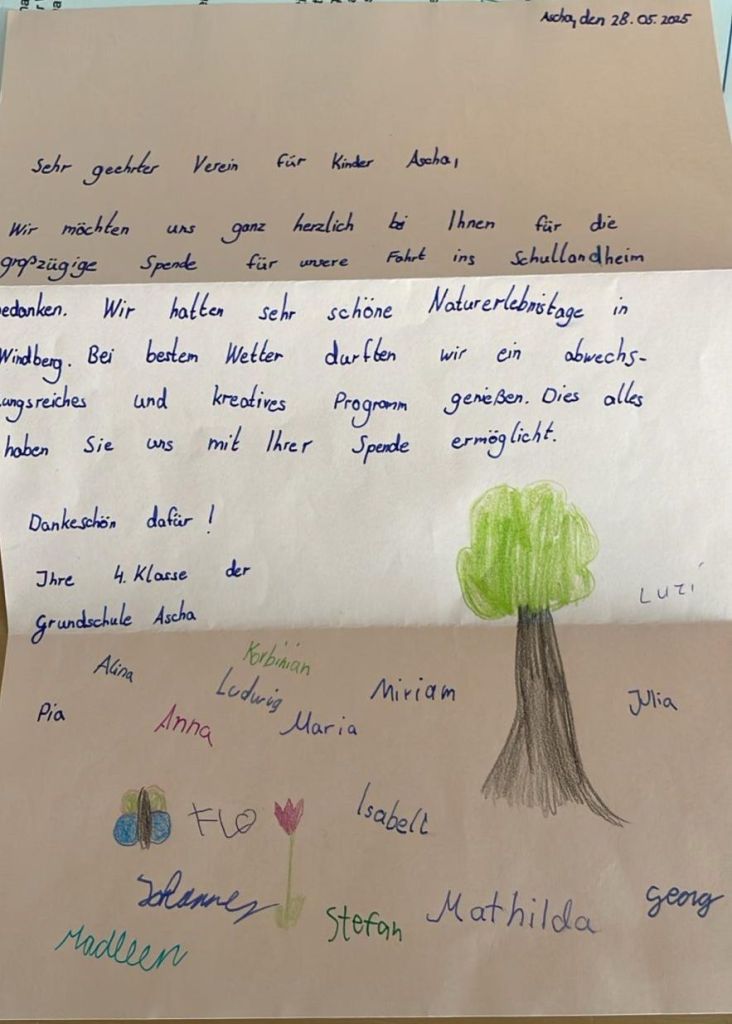 Ascha, den 28.05.2025
Sehr geehrter Verein für Kinder Ascha,
Wir möchten uns ganz herzlich bei Ihnen für die
großzügige Spende für unsere Fahrt ins Schullandheim
edanken. Wir hatten sehr schöne Naturerlebnistage in
Windberg. Bei bestem Wetter durften wir ein abwechs-
ungsreiches und kreatives Programm genießen. Dies alles
haben Sie uns mit Ihrer Spende ermöglicht.
Dankeschön dafür!
Ihre 4. Klasse der
Grundschule Ascha
Luzi
Korbinian
Alina
Ludwig
Miriam
Julia
Pia
Anna
Maria
FLO
Isabell
Johannes
Stefan
Mathilda
Georg
Madleen